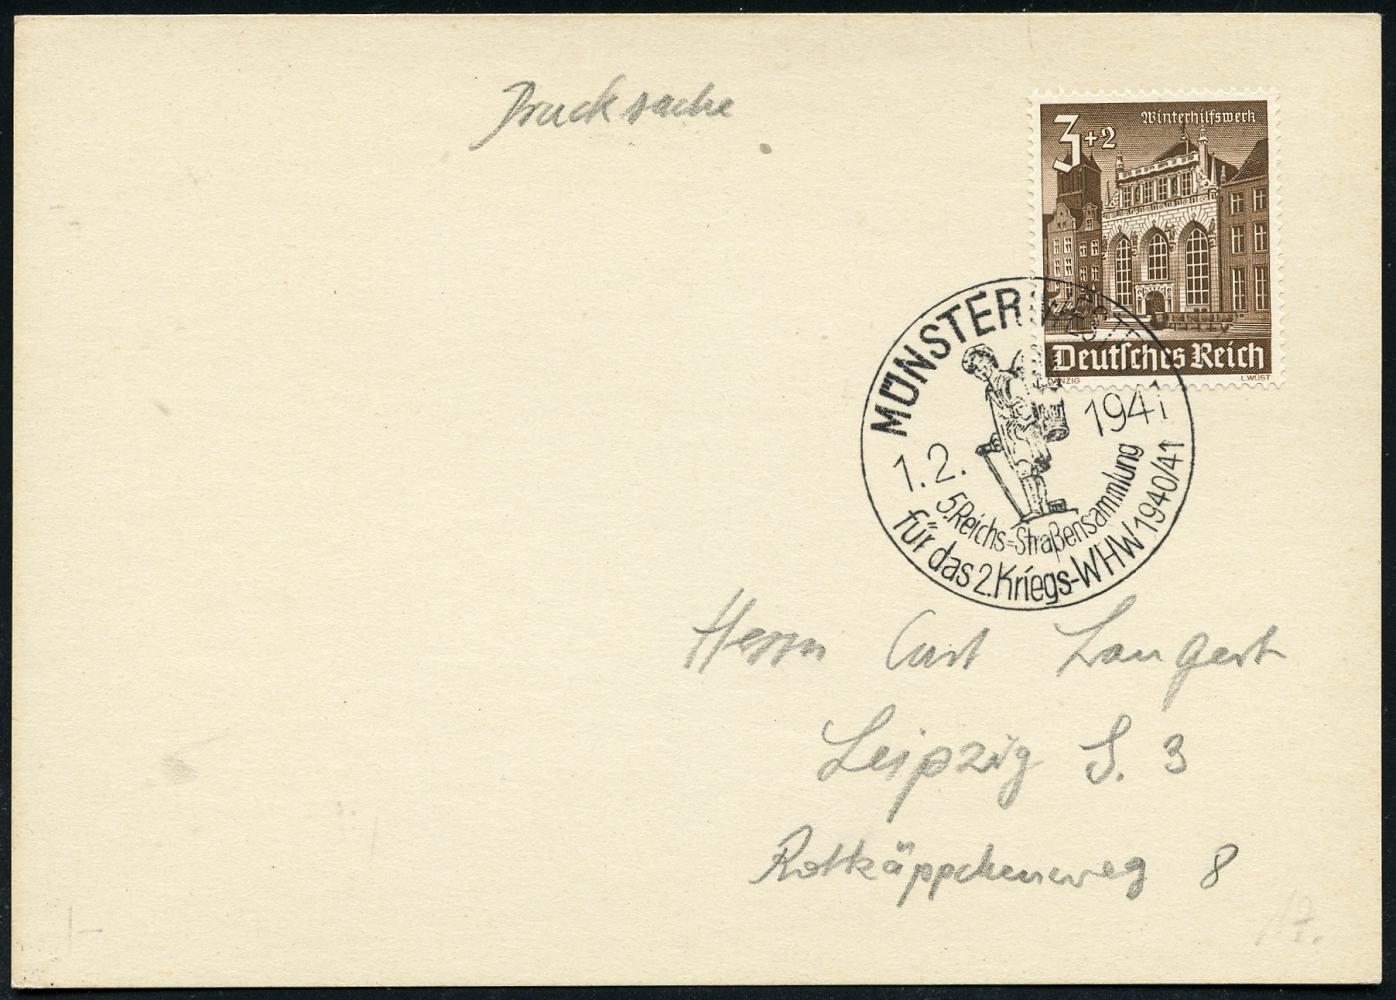 Drucksache
3+2
Winterhilfswerk
Deutsches Reich
DANZIG L.WÜST
MÜNSTER (WESTF)
1.2. 1941
5.Reichs-Straßensammlung
für das 2.Kriegs-WHW 1940/41
Herrn Curt Langert
Leipzig S. 3
Rotkäppchenweg 8
1-
17.